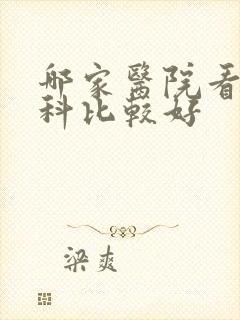 哪家醫院看
科比較好
梁爽